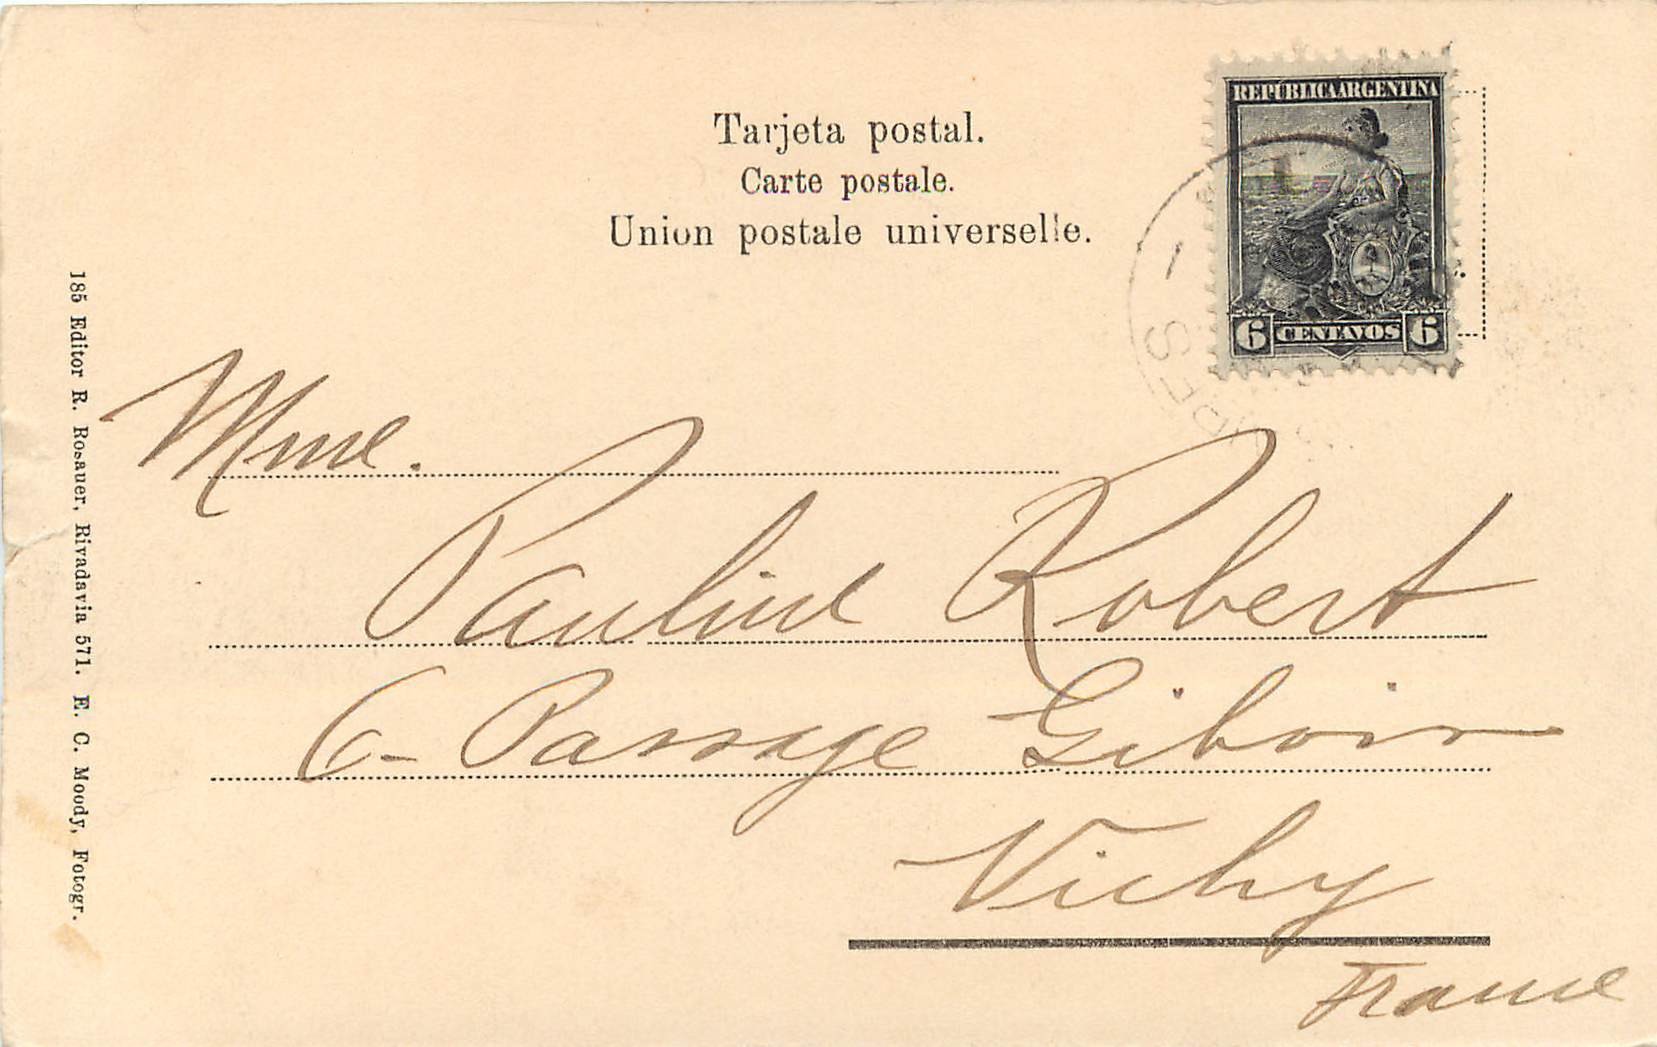 Tarjeta postal.
Carte postale.
Union postale universelle.
REPÚBLICA ARGENTINA
6 CENTAVOS 6
185 Editor R. Rosauer, Rivadavia 571. E. C. Moody, Fotogr.
Mme.
Pauline Robert
6 - Passage Giboin
Vichy
France